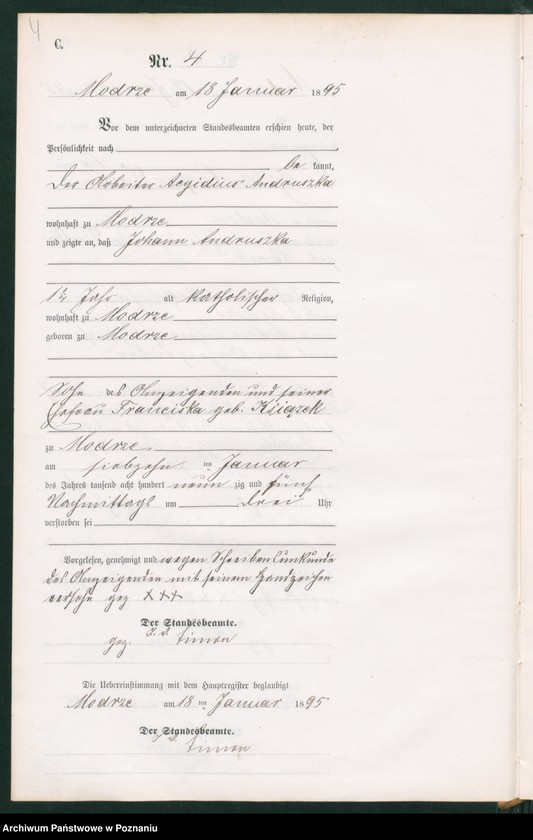 4
C.
Nr. 4
Modrze am 18 Januar 1895
Vor dem unterzeichneten Standesbeamten erschien heute, der
Persönlichkeit nach
be kannt,
der Arbeiter Aegidius Andruszka
wohnhaft zu Modrze
und zeigte an, daß Johann Andruszka
1½ Jahr alt katholischer Religion,
wohnhaft zu Modrze
geboren zu Modrze
Sohn des Anzeigenden und seiner
Ehefrau Franciska geb. Książek
zu Modrze
am siebzehn ten Januar
des Jahres tausend acht hundert neun zig und fünf
Nachmittags um drei Uhr
verstorben sei
Vorgelesen, genehmigt und wegen Schreibensunkunde
des Anzeigenden mit seinem Handzeichen
versehn gez. XXX
Der Standesbeamte.
J. V.
gez. Simon
Die Uebereinstimmung mit dem Hauptregister beglaubigt
Modrze am 18 ten Januar 1895
Der Standesbeamte.
J. V.
Simon
Archiwum Państwowe w Poznaniu